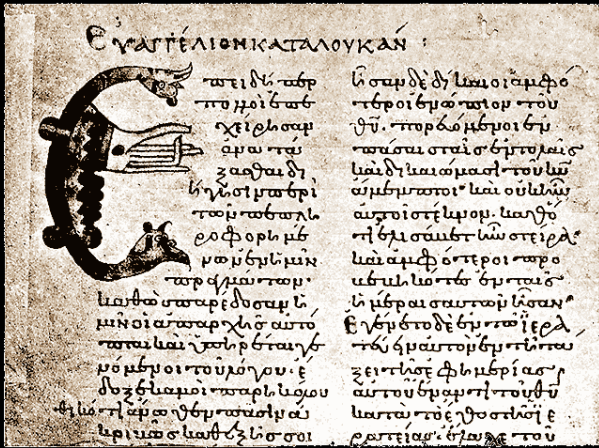 Εὐαγγέλιον κατὰ Λουκᾶν :
Ἐπειδήπερ
πολλοὶ ἐπε
χείρησαν
ἀνατα
ξασθαι δι
ήγησιν περὶ
τῶν πεπλη
ροφορημέ
νων ἐν ἡμῖν
πραγμάτων·
καθὼς παρέδοσαν ἡ
μῖν οἱ ἀπαρχῆς αὐτό
πται καὶ ὑπηρέται γε
νόμενοι τοῦ λόγου· ἔ
δοξε κἀμοὶ παρηκολου
θηκότι ἄνωθεν πᾶσιν ἀ
κριβῶς καθεξῆς σοι
ἦσαν δὲ δίκαιοι ἀμφό
τεροι ἐνώπιον τοῦ
θῦ. πορευόμενοι ἐν
πάσαις ταῖς ἐντολαῖς
καὶ δικαιώμασι τοῦ κῦ
ἄμεμπτοι· καὶ οὐκ ἦν
αὐτοῖς τέκνον. καθό
τι ἐλισάβετ ἦν στείρα·
καὶ ἀμφότεροι προ
βεβηκότες ἐν ταῖς
ἡμέραις αὐτῶν ἦσαν·
Ἐγένετο δὲ ἐν τῷ ἱερα
τεύειν αὐτὸν ἐν τῇ τά
ξει τῆς ἐφημερίας
αὐτοῦ ἔναντι τοῦ θῦ
κατὰ τὸ ἔθος τῆς ἱε
ρατείας. ἔλαχε τοῦ